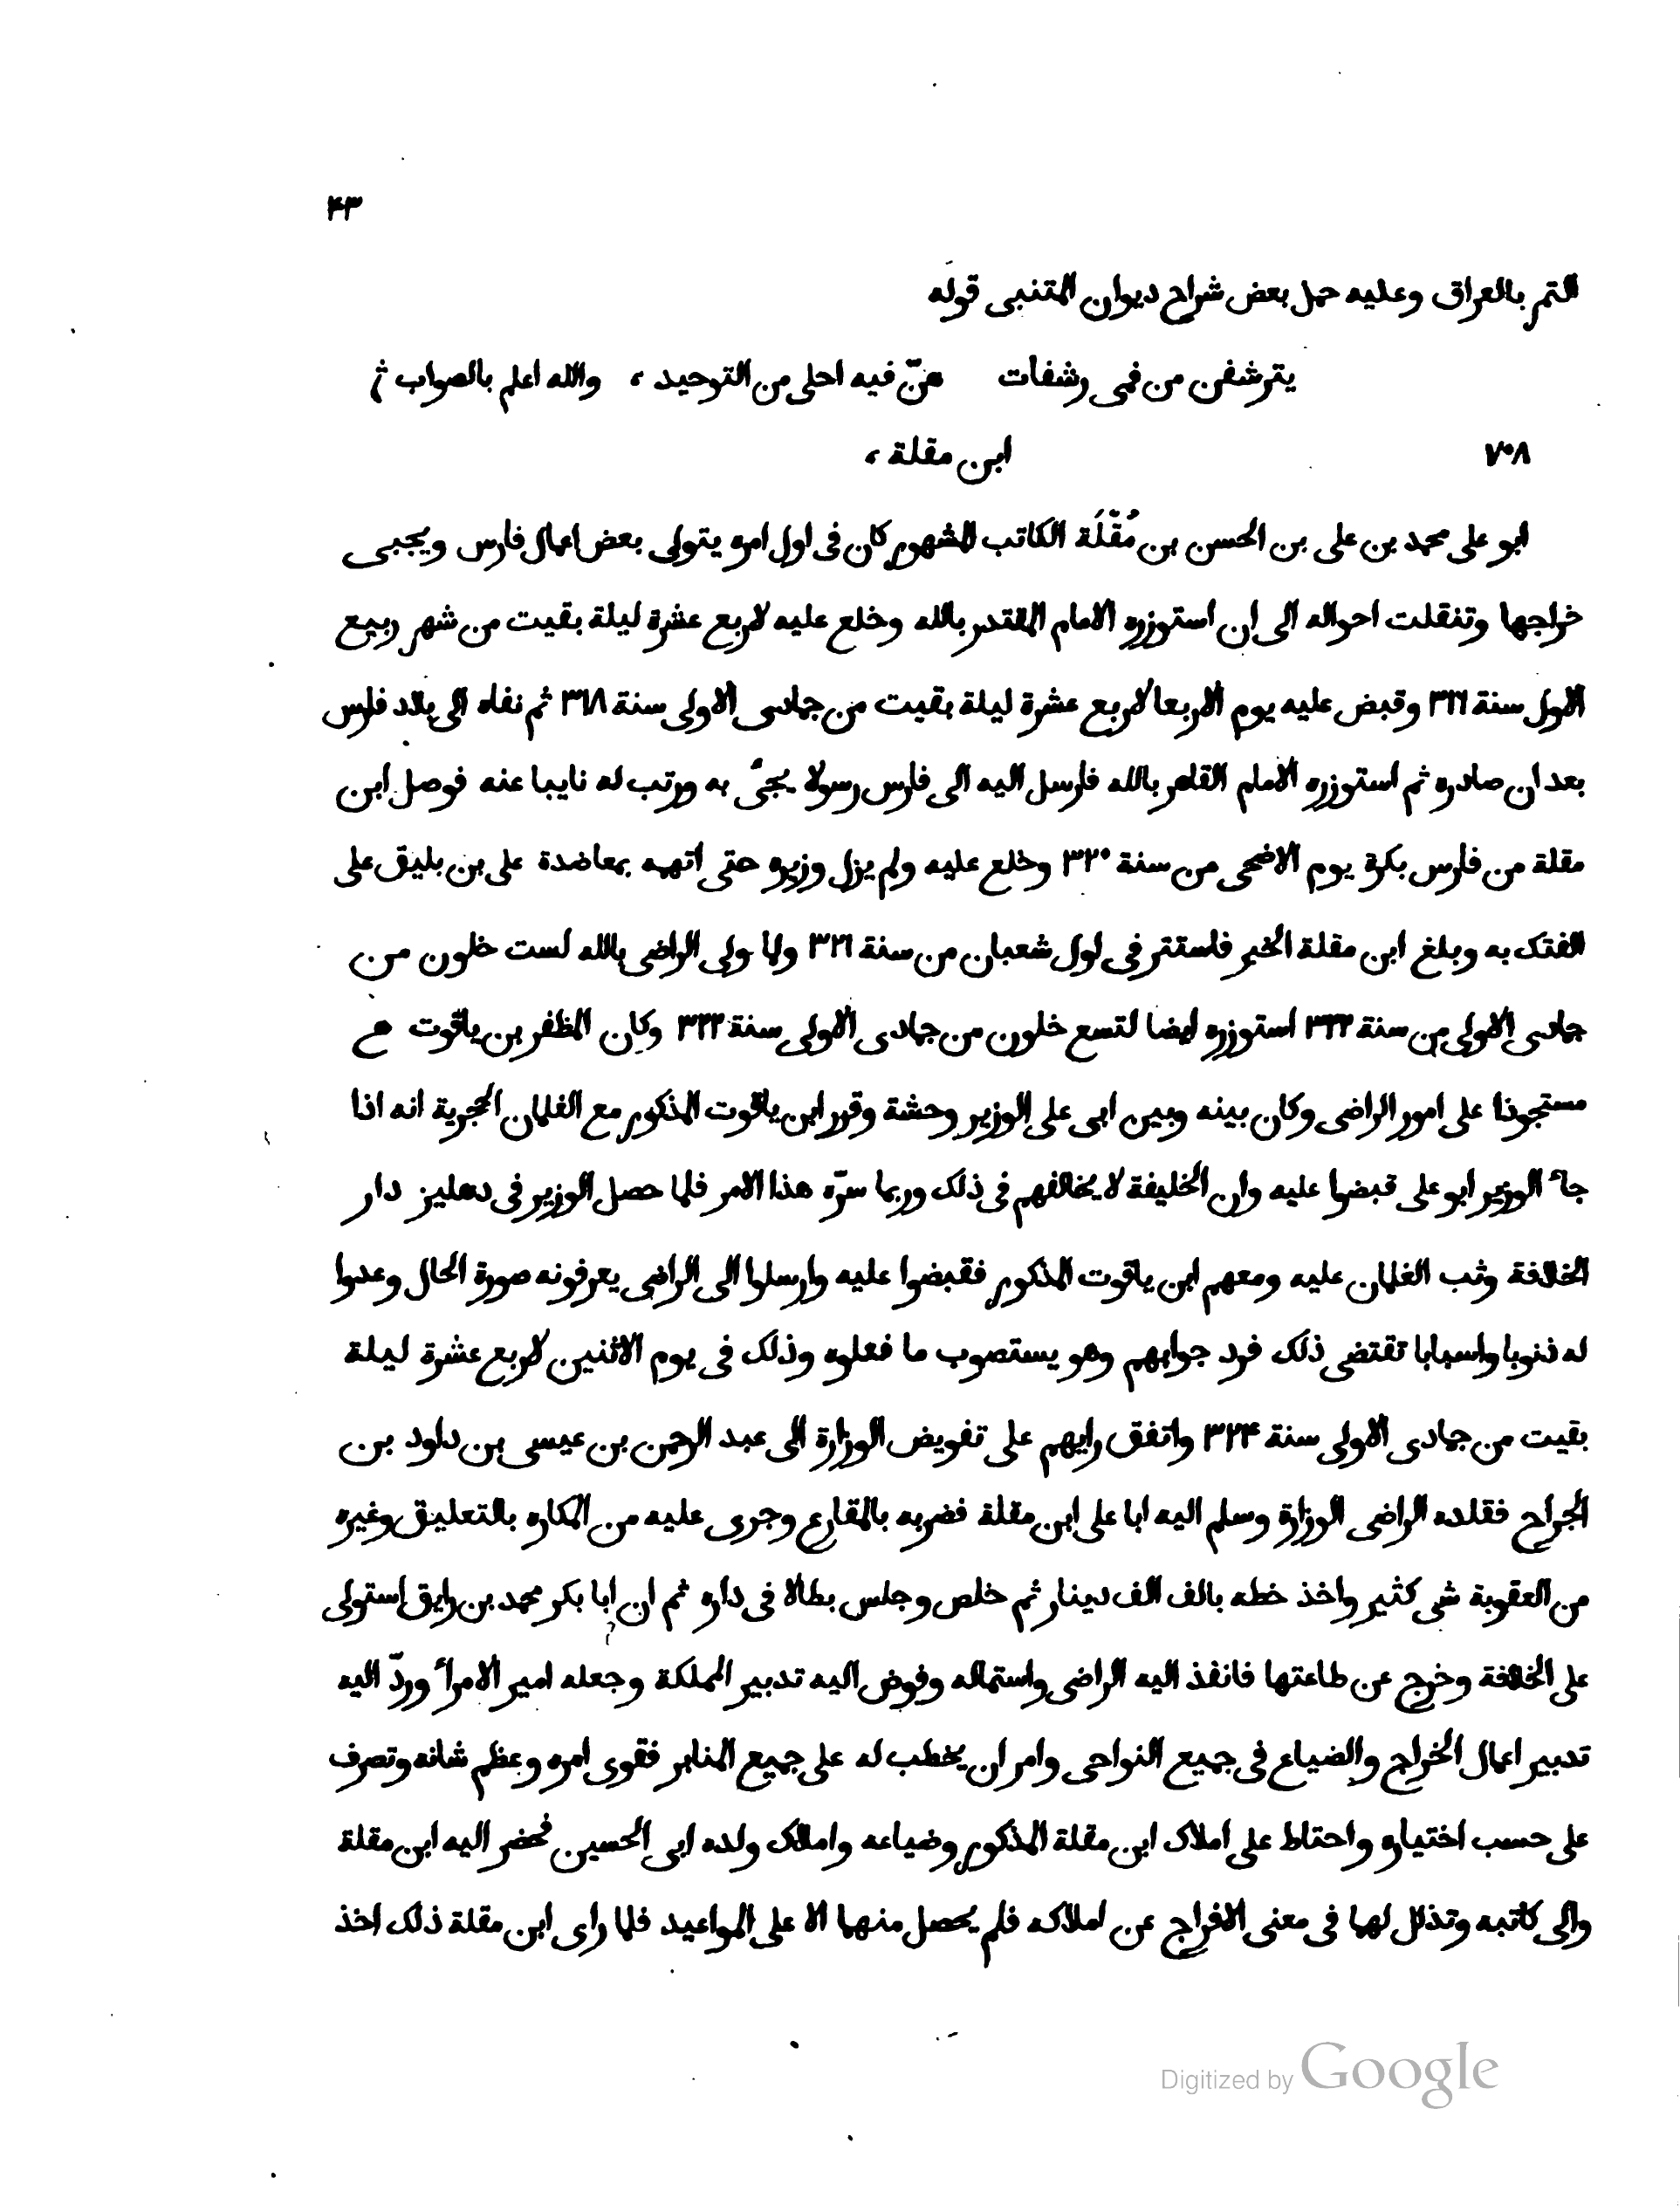 ۴۳
التمر بالعراق وعليه حمل بعض شراح ديوان المتنبى قوله
يترشفن من فمى رشفات هنّ فيه احلى من التوحيد ، والله اعلم بالصواب
۷۰۸ ابن مقلة ،
ابو على محمد بن على بن الحسن بن مُقْلَة الكاتب المشهور كان فى اول امره يتولى بعض اعمال فارس ويجبى
خراجها وتنقلت احواله الى ان استوزره الامام المقتدر بالله وخلع عليه لاربع عشرة ليلة بقيت من شهر ربيع
الاول سنة ۳۱۶ وقبض عليه يوم الاربعا لاربع عشرة ليلة بقيت من جمادى الاولى سنة ۳۱۸ ثم نفاه الى بلاد فارس
بعد ان صادره ثم استوزره الامام القاهر بالله فارسل اليه الى فارس رسولا يجىّ به ورتب له نايبا عنه فوصل ابن
مقلة من فارس بكرة يوم الاضحى من سنة ۳۲۰ وخلع عليه ولم يزل وزيره حتى اتهمه بمعاضدة على بن بليق على
الفتك به وبلغ ابن مقلة الخبر فاستتر فى اول شعبان من سنة ۳۲۱ ولما ولى الراضى بالله لست خلون من
جمادى الاولى من سنة ۳۲۲ استوزره ايضا لتسع خلون من جمادى الاولى سنة ۳۲۲ وكان المظفر بن ياقوت
مستحوذا على امور الراضى وكان بينه وبين ابى على الوزير وحشة وقرر ابن ياقوت المذكور مع الغلمان الحجرية انه اذا
جاء الوزير ابو على قبضوا عليه وان الخليفة لا يخالفهم فى ذلك وربما سرّه هذا الامر فلما حصل الوزير فى دهليز دار
الخلافة وثب الغلمان عليه ومعهم ابن ياقوت المذكور فقبضوا عليه وارسلوا الى الراضى يعرفونه صورة الحال وعدوا
له ذنوبا واسبابا تقتضى ذلك فرد جوابهم وهو يستصوب ما فعلوه وذلك فى يوم الاثنين لاربع عشرة ليلة
بقيت من جمادى الاولى سنة ۳۲۴ واتفق رايهم على تفويض الوزارة الى عبد الرحمن بن عيسى بن داود بن
الجراح فقلده الراضى الوزارة وسلم اليه ابا على ابن مقلة فضربه بالمقارع وجرى عليه من المكاره بالتعليق وغيره
من العقوبة شى كثير واخذ خطه بالف الف دينار ثم خلص وجلس بطالا فى داره ثم ان ابا بكر محمد بن رايق استولى
على الخلافة وخرج عن طاعتها فانفذ اليه الراضى واستماله وفوض اليه تدبير المملكة وجعله امير الامراء وردّ اليه
تدبير اعمال الخراج والضياع فى جميع النواحى وامر ان يخطب له على جميع المنابر فقوى امره وعظم شانه وتصرف
على حسب اختياره واحتاط على املاك ابن مقلة المذكور وضياعه واملاك ولده ابى الحسين فحضر اليه ابن مقلة
والى كاتبه وتذلل لهما فى معنى الافراج عن املاكه فلم يحصل منهما الا على المواعيد فلما راى ابن مقلة ذلك اخذ
Digitized by Google